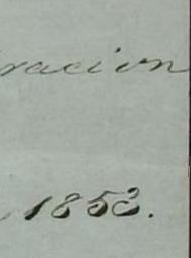 racion
1853.